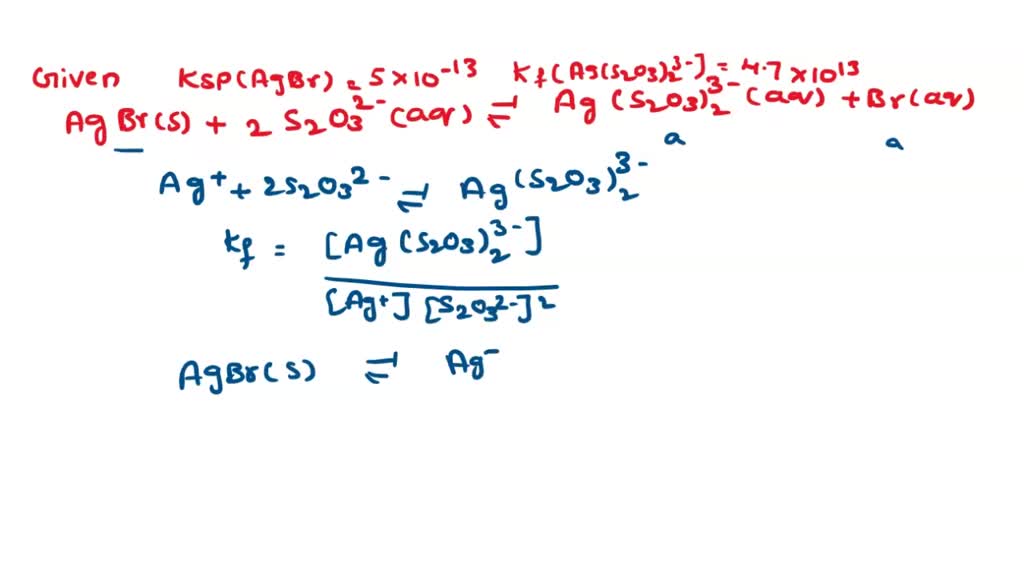 Given Ksp(AgBr) = 5 × 10^-13 Kf(Ag(S2O3)2^3-] = 4.7 × 10^13
AgBr(s) + 2 S2O3^2- (aq) ⇌ Ag(S2O3)2^3- (aq) + Br(aq)
a a
Ag+ + 2S2O3^2- ⇌ Ag(S2O3)2^3-
Kf = [Ag(S2O3)2^3-]
[Ag+] [S2O3^2-]^2
AgBr(s) ⇌ Ag-